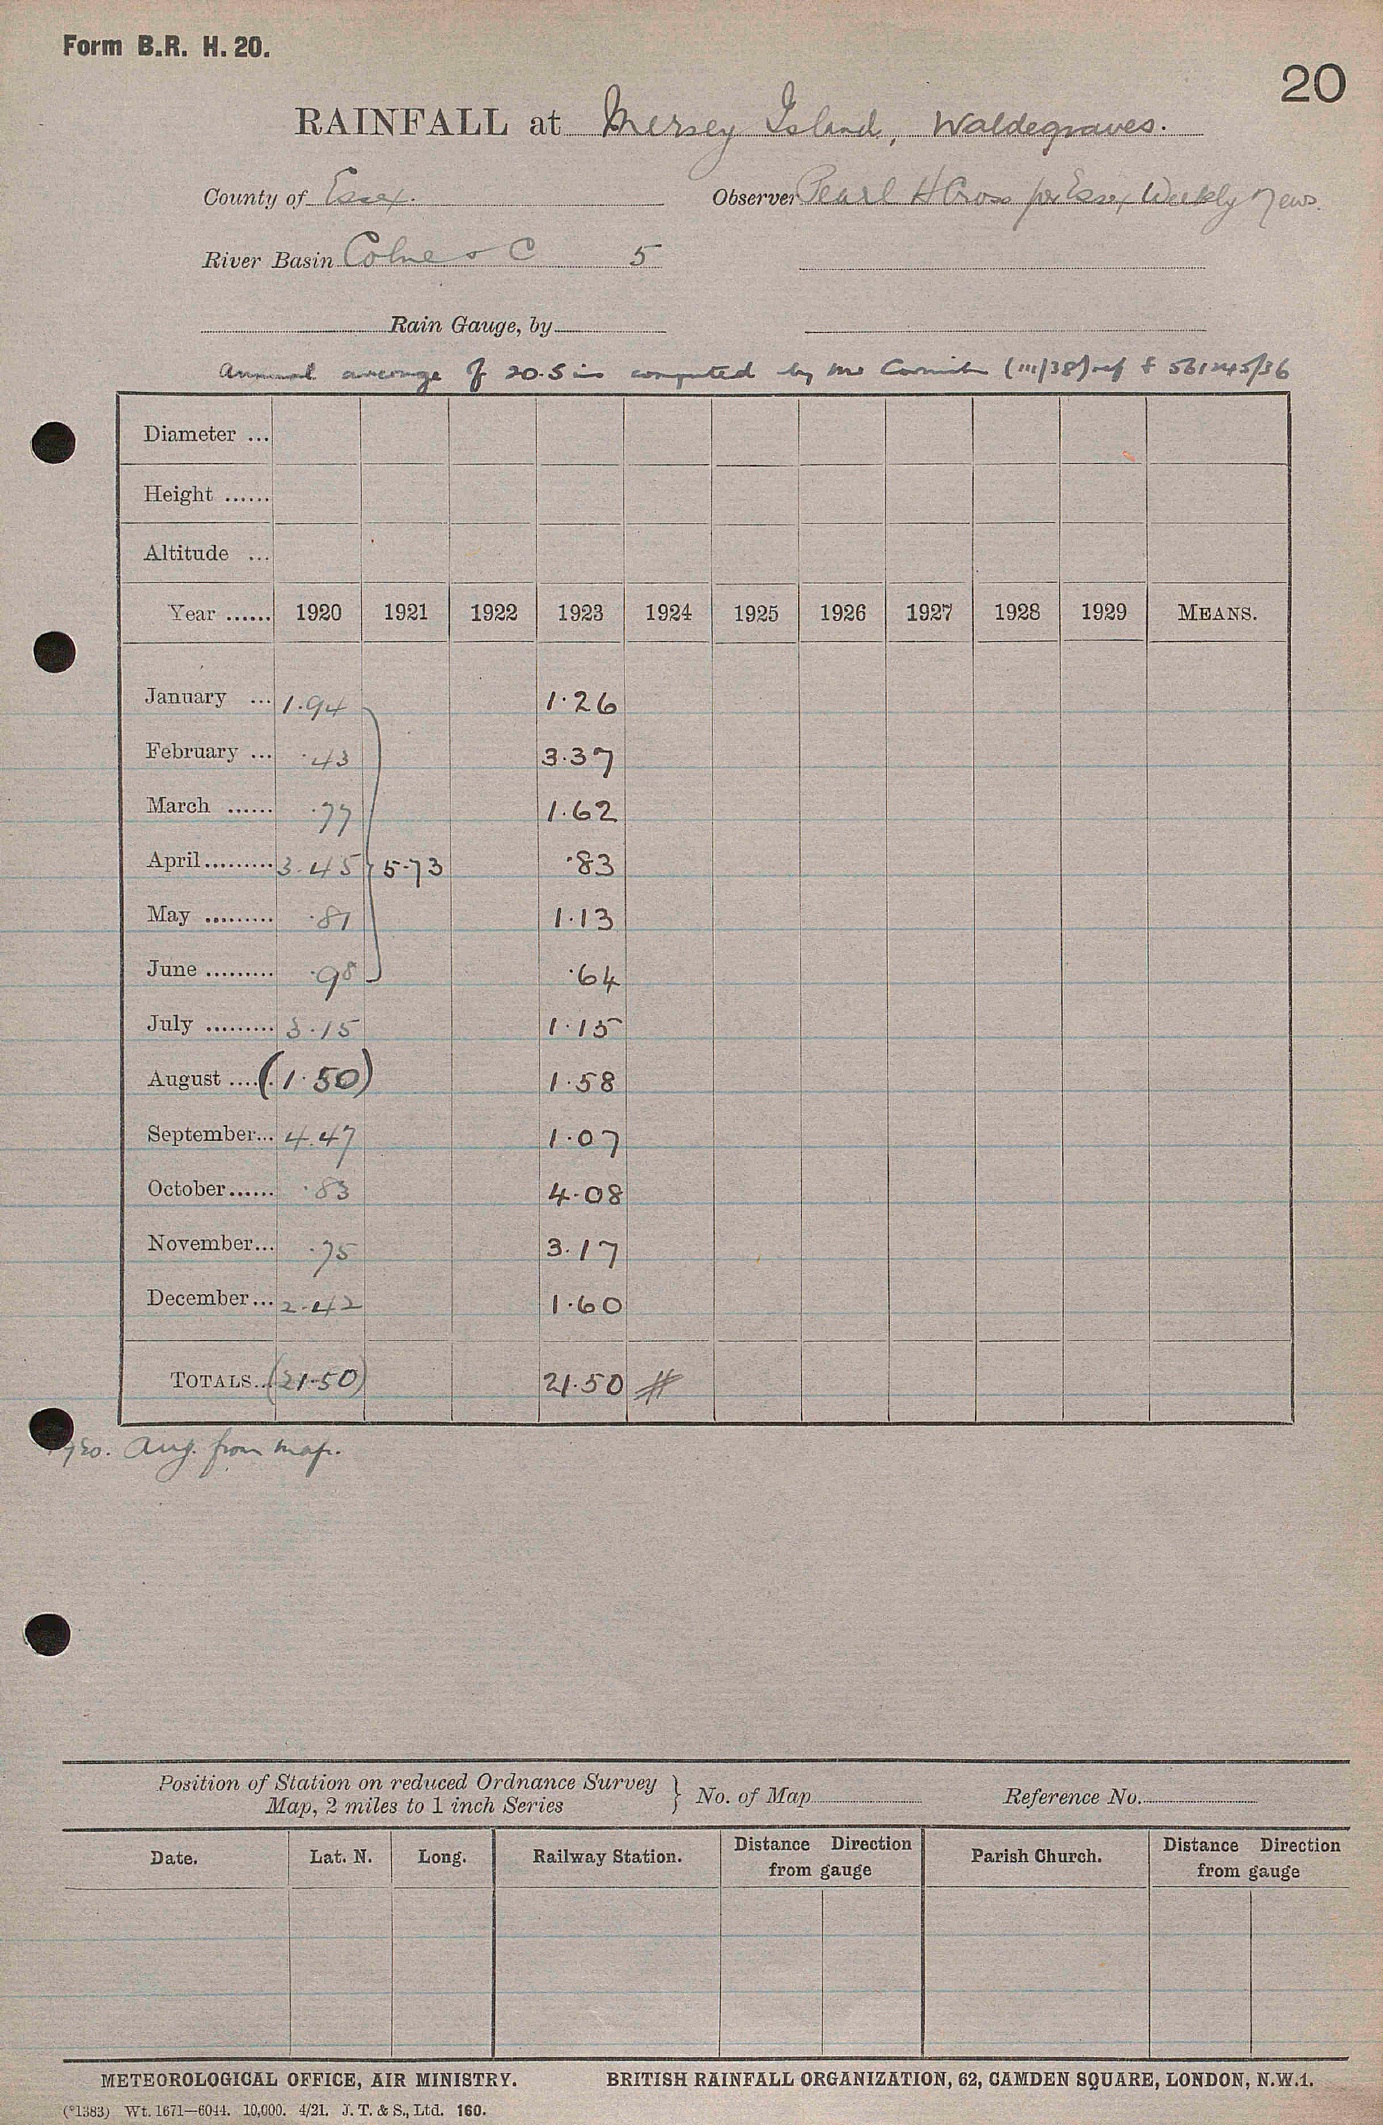 Form B.R. H. 20.
20
RAINFALL at Mersey Island, Waldegraves.
County of Essex. Observer Pearl H Cross per Essex Weekly News.
River Basin Colne & C 5
Rain Gauge, by
Annual average of 20.5 in computed by Mr Cornish (III/38) ref
Diameter ...
Height ......
Altitude ...
Year ...... 1920 1921 1922 1923 1924 1925 1926 1927 1928 1929 MEANS.
January ... 1.94 1.26
February ... .43 3.37
March ...... .77 1.62
April ......... 3.45 } 5.73 .83
May ......... .81 1.13
June ......... .98 .64
July ......... 3.15 1.15
August ..... (1.50) 1.58
September... 4.47 1.07
October...... .83 4.08
November... .75 3.17
December... 2.42 1.60
TOTALS... (21.50) 21.50 #
1920. Aug. from map.
Position of Station on reduced Ordnance Survey
Map, 2 miles to 1 inch Series } No. of Map Reference No.
Date. Lat. N. Long. Railway Station. Distance Direction from gauge Parish Church. Distance Direction from gauge
METEOROLOGICAL OFFICE, AIR MINISTRY. BRITISH RAINFALL ORGANIZATION, 62, CAMDEN SQUARE, LONDON, N.W.1.
(*1383) Wt. 1671—6044. 10,000. 4/21. J. T. & S., Ltd. 160.